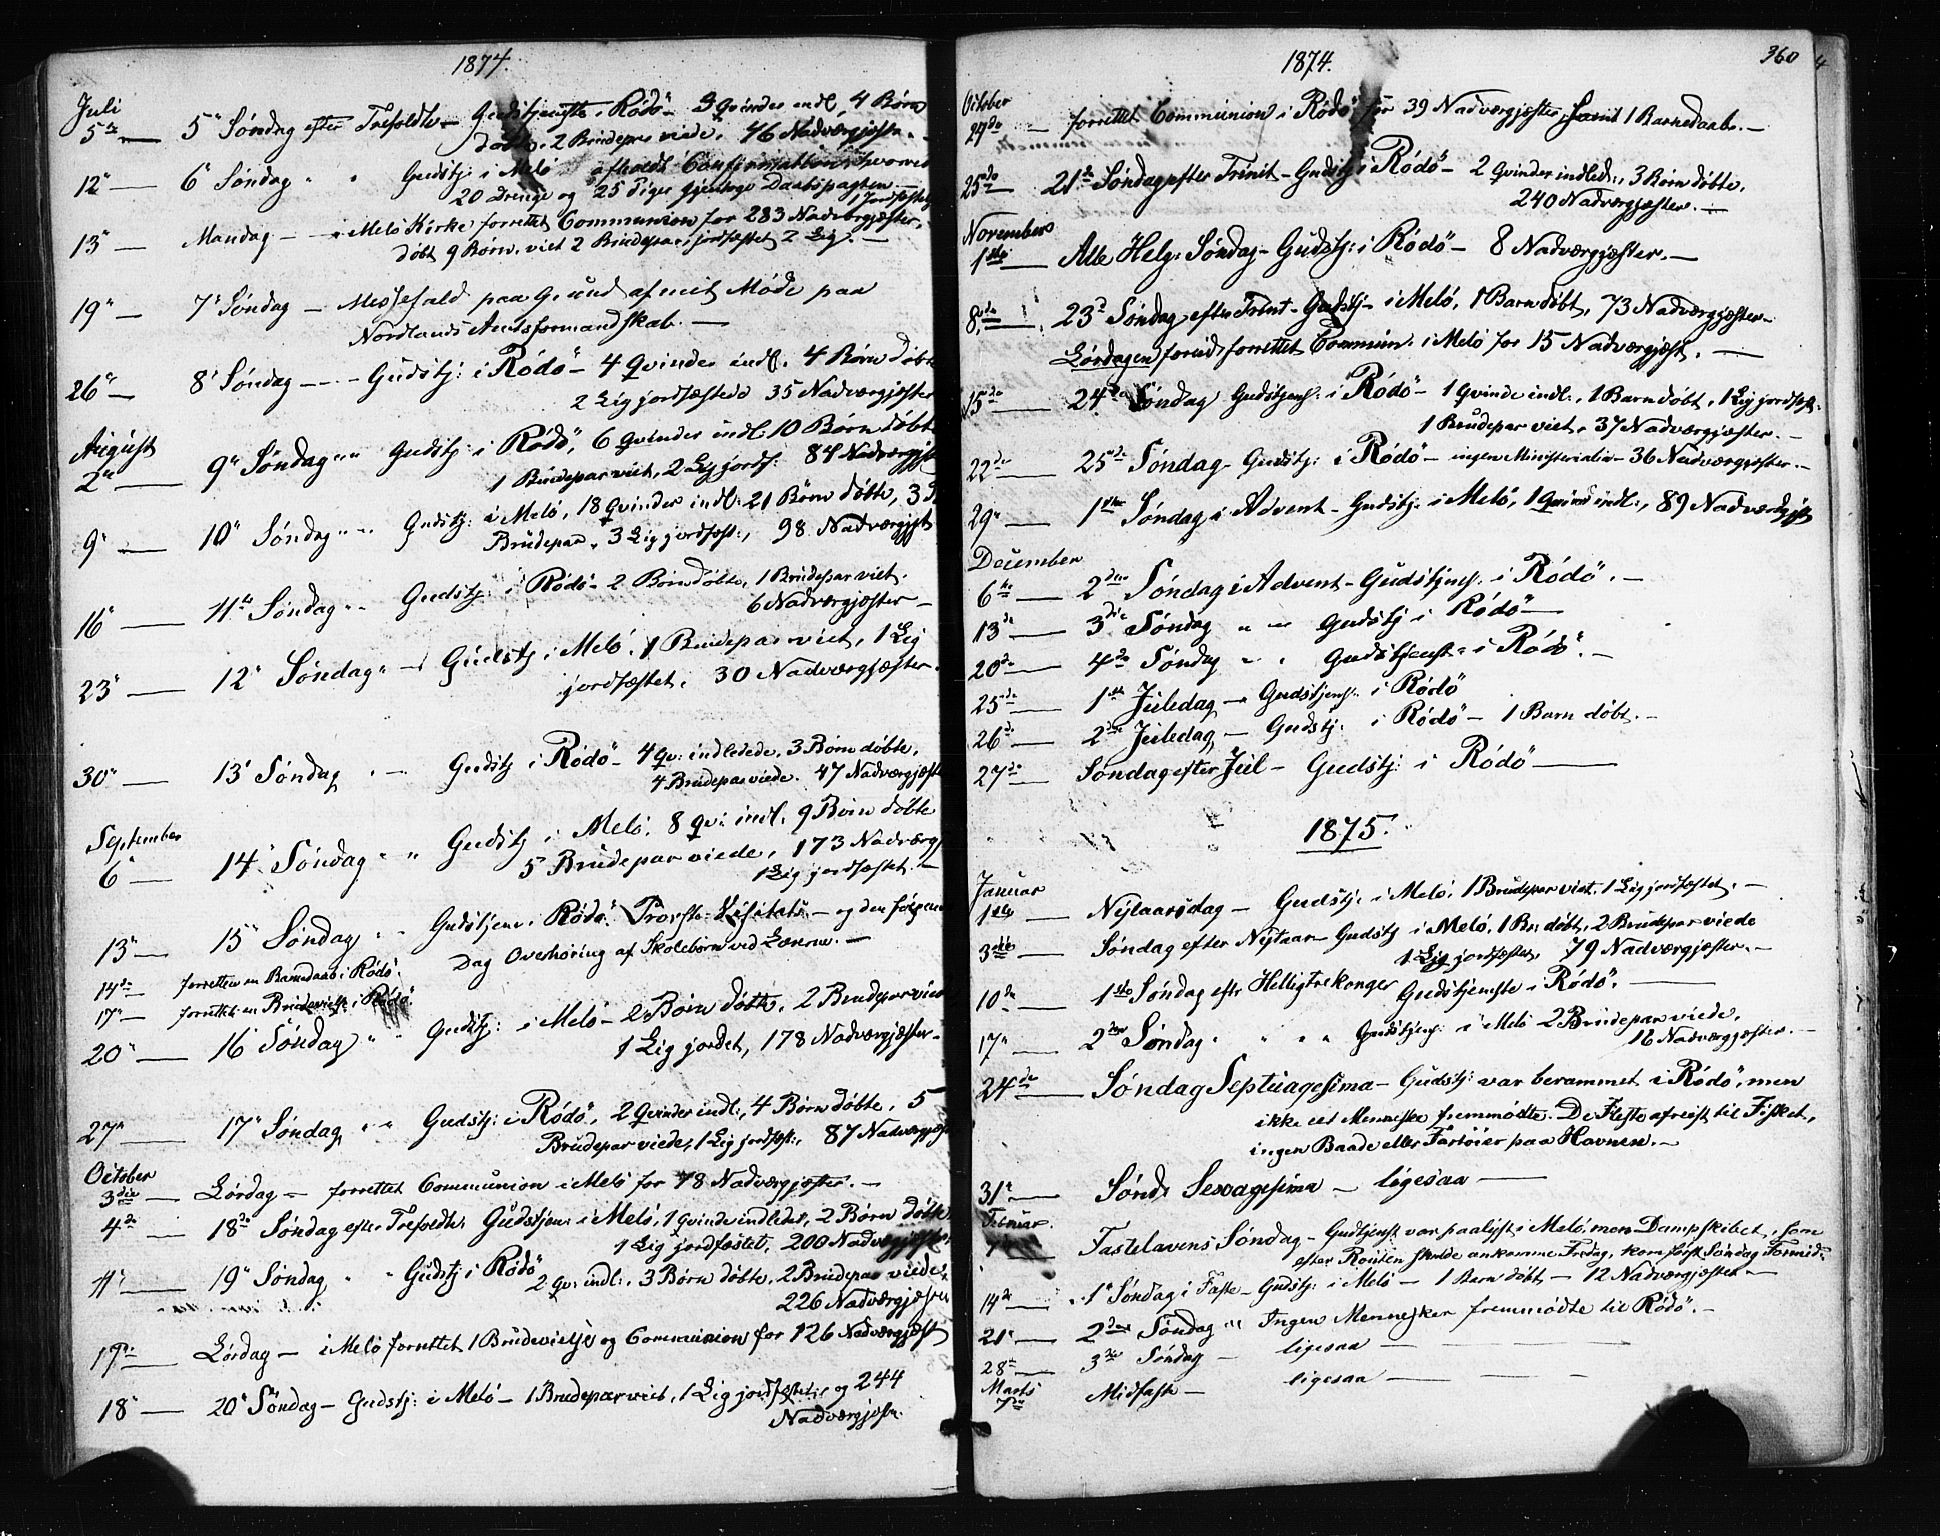 1874.
Juli
5te — 5' Søndag efter Trefoldh — Gudstjeneste i Rödö — 3 Qvinder indl, 4 Børn
døbte, 2 Brudepar viede, 46 Nadvergjæster.
12" — 6' Søndag " " Gudstj: i Melö afholdt Confirmation hvorved
20 Drenge og 25 Piger gjentoge Daabspagten — 1 jordfæstet
13" — Mandag — i Melö Kirke forrettet Communion for 283 Nadvergjæster,
døbt 9 Børn, viet 2 Brudepar, jordfæstet 2 Lig. —
19" — 7' Søndag — Messefald paa Grund af mit Møde paa
Nordlands Amtsformandskab. —
26" — 8' Søndag — Gudstj: i Rödö — 4 Qvinder indl. 4 Børn døbte
2 Lig jordfæstede 35 Nadværgjæster
August
2de — 9" Søndag " " Gudstj: i Rödö, 6 Qvinder indl: 10 Børn døbte
1 Brudepar viet, 2 Lig jordf: 84 Nadværgj
9" — 10" Søndag " " Gudstj: i Melö, 18 Qvinder indl: 21 Børn døbte, 3
Brudepar, 3 Lig jordfæst:, 98 Nadværgjst
16" — 11te Søndag " " Gudstj: i Rödö — 2 Børn døbte, 1 Brudepar viet.
6 Nadværgjæster —
23" — 12" Søndag " — Gudstj: i Melö, 1 Brudepar viet, 1 Lig
jordfæstet, 30 Nadværgjæster.
30" — 13' Søndag " — Gudstj i Rödö — 4 Qv: indledede, 3 Børn døbte,
4 Brudepar viede. 47 Nadværgjæste
September
6" — 14' Søndag " " Gudstj i Melö. 8 Qv: indl. 9 Børn døbte
5 Brudepar viede, 173 Nadværg
1 Lig jordfæstet. —
13" — 15" Søndag " " Gudstjen: i Rödö. Provste-Visitats — og den følgende
Dag Overhøring af Skolebørn ved Læreren. —
14de — forrettes en Barnedaab i Rödö.
17" — forrettet en Brudevielse i Rödö
20" — 16' Søndag " " Gudstj: i Melö — 2 Børn døbte, 2 Brudepar viede
1 Lig jordet, 178 Nadværgjæster —
27" — 17" Søndag " " Gudstj: i Rödö, 2 Qvinder indl:, 4 Børn døbte, 5
Brudepar viede, 1 Lig jordfæst:, 87 Nadværgjæst
October
3die — Lørdag — forrettet Communion i Melö for 78 Nadværgjæster. —
4de — 18de Søndag efter Trefoldh: Gudstjen: i Melö, 1 Qvinde indledet, 2 Børn døbte
1 Lig jordfæstet, 200 Nadværgjæster
11" — 19" Søndag " " Gudstj i Rödö
2 Qv: indl:, 3 Børn døbte, 2 Brudepar viede,
226 Nadværgjæster
17de — Lørdag — i Melö forrettet 1 Brudevielse og Communion for 126 Nadværgjæst
18" — 20" Søndag — Gudstj: i Melö — 1 Brudepar viet, 1 Lig jordfæstet og 244
Nadværgjæste.
1874.
360
October
24de — forrettet Communion i Rödö for 39 Nadværgjæster, samt 1 Barnedaab. —
25de — 21de Søndag efter Trinit — Gudstj i Rödö — 2 Qvinder indled:, 3 Børn døbte,
240 Nadværgjæster. —
November
1ste — Alle Helg: Søndag — Gudstj: i Rödö — 8 Nadværgjæster. —
8de — 23d Søndag efter Trint — Gudstj — i Melö, 1 Barn døbt, 73 Nadværgjæster —
Lørdagen forud forrettet Commun: i Melö for 15 Nadværgjæst. —
15de — 24de Søndag Gudstjens: i Rödö — 1 Qvinde indl:, 1 Barn døbt, 1 Lig jordfæst:
1 Brudepar viet, 37 Nadværgjæster. —
22de — 25de Søndag — Gudstj: i Rödö — ingen Ministerialia — 36 Nadværgjæster. —
29" — 1ste Søndag i Advent — Gudstj: i Melö, 1 Qvinde indl:, 89 Nadværdgjst
December
6te — 2den Søndag i Advent — Gudstjens: i Rödö. —
13de — 3die Søndag " — Gudstj i Rödö —
20de — 4de Søndag " " Gudstjenst: i Rödö. —
25de — 1ste Juledag — Gudstjens: i Rödö
26de — 2den Juledag — Gudstj: i Rödö — 1 Barn døbt. —
27de — Søndag efter Juul — Gudstj: i Rödö —
1875.
Januar
1ste — Nytaarsdag — Gudstj: i Melö, 1 Brudepar viet, 1 Lig jordfæstet. —
3die — Søndag efter Nytaar — Gudstj i Melö, 1 Bn: døbt, 2 Brudepar viede
1 Lig jordfæstet, 79 Nadværgjæster. —
10de — 1ste Søndag eftr Helligtrekonger Gudstjeneste i Rödö. —
17" — 2den Søndag " " " Gudstjens: i Melö 2 Brudepar viede,
16 Nadværgjæster. —
24de — Søndag Septuagesima — Gudstj: var berammet i Rödö, men
ikke eet Menneske fremmødte. De Fleste afreist til Fisket,
ingen Baade eller Fartøier paa Havnen. —
31te — Sønd: Sexagesima — ligesaa —
Februar
7 — Fastelavens Søndag — Gudtjenst var paalyst i Melö, men Dampskibet, som
efter Routen skulde ankomme Fredag, kom først Søndag Formid:
14de — 1" Søndag i Faste — Gudstj: i Melö — 1 Barn døbt — 12 Nadværgjæster —
21" — 2den Søndag " " Ingen Mennesker fremmødte til Rödö. —
28de — 3die Søndag — ligesaa —
Marts
7de Midfaste — ligesaa —